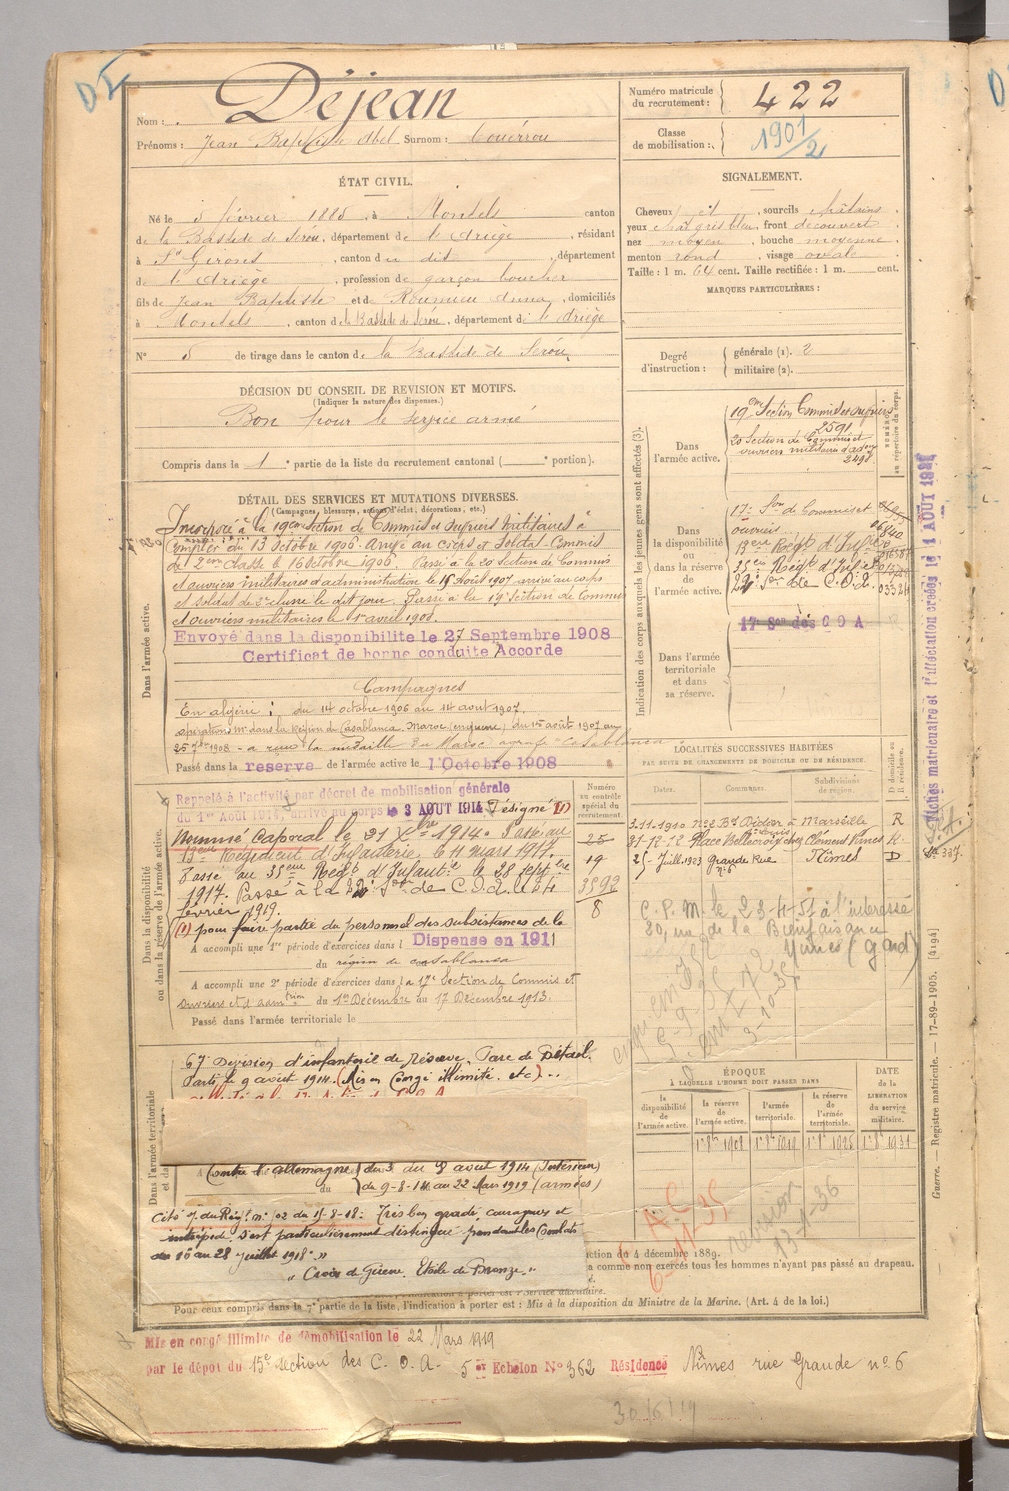 DE
Nom : Déjean
Prénoms : Jean Baptiste Abel Surnom : Couérrou
Numéro matricule du recrutement : 422
Classe de mobilisation : 1901/2
ÉTAT CIVIL.
Né le 5 février 1885, à Montels canton
de la Bastide de Serou, département de l'Ariège, résidant
à St Girons, canton du dit, département
de l'Ariège, profession de garçon boucher
fils de Jean Baptiste et de Roumieu Anna, domiciliés
à Montels, canton de la Bastide de Serou, département de l'Ariège
N° 5 de tirage dans le canton de la Bastide de Serou
SIGNALEMENT.
Cheveux et, sourcils châtains
yeux gris bleu, front découvert
nez moyen, bouche moyenne
menton rond, visage ovale
Taille : 1 m. 64 cent. Taille rectifiée : 1 m. cent.
MARQUES PARTICULIÈRES :
Degré d'instruction : générale (1). 2
militaire (2).
DÉCISION DU CONSEIL DE REVISION ET MOTIFS.
(Indiquer la nature des dispenses.)
Bon pour le service armé
Compris dans la 1e partie de la liste du recrutement cantonal ( e portion).
DÉTAIL DES SERVICES ET MUTATIONS DIVERSES.
(Campagnes, blessures, actions d'éclat, décorations, etc.)
Dans l'armée active.
Incorporé à la 19eme Section de Commis et Ouvriers Militaires à
compter du 13 octobre 1906. Arrivé au corps et Soldat-Commis
de 2eme classe le 16 octobre 1906. Passé à la 20 Section de Commis
et ouvriers militaires d'administration le 15 août 1907 arrivé au corps
et soldat de 2e classe le dit jour. Passé à la 19e Section de Commis
et ouvriers militaires le 1er avril 1908.
Envoyé dans la disponibilite le 27 Septembre 1908
Certificat de bonne conduite Accorde
Campagnes
En algérie : du 14 octobre 1906 au 14 août 1907.
opérations Mres dans la Région de Casablanca. Maroc (en guerre) du 15 août 1907 au
25 7bre 1908 - a reçu la médaille du Maroc agrafe "Casablanca
Passé dans la reserve de l'armée active le 1 Octobre 1908
Indication des corps auxquels les jeunes gens sont affectés (3).
NUMÉRO au répertoire du corps.
Dans l'armée active.
19eme Section Commis et ouvriers
2591
20 Section de Commis et
ouvriers militaires d'adon
2498
Dans la disponibilité ou dans la réserve de l'armée active.
17e Son de Commis et
ouvriers
13eme Régt d'Infie
35eme Régt d'Infie
22e Son de C.O.A.
Dans l'armée territoriale et dans sa réserve.
17e Son des C O A
Fiches matricuaire et l'affectation creées le 1 AOUT 1927
Dans la disponibilité ou dans la réserve de l'armée active.
Rappelé à l'activité par décret de mobilisation générale
du 1er Août 1914, arrivé au corps le 3 AOUT 1914. Désigné (1)
Nommé Caporal le 21 Xbre 1914. Passé au
13eme Régiment d'Infanterie, le 11 mars 1917.
Passé au 35eme Régt d'Infantie le 28 septbre
1917. Passé à la 22e Son de C.O.A. le 4
février 1919.
(1) pour faire partie du personnel des subsistances de la
A accompli une 1re période d'exercices dans l Dispense en 1911
du région de casablanca
A accompli une 2e période d'exercices dans la 17e Section de Commis et
ouvriers et d'admtion du 1er Décembre au 17 Décembre 1913.
Passé dans l'armée territoriale le
Numéro au contrôle spécial du recrutement.
25
19
3592
8
LOCALITÉS SUCCESSIVES HABITÉES
PAR SUITE DE CHANGEMENTS DE DOMICILE OU DE RÉSIDENCE.
Dates. Communes. Subdivisions de région. D domicile ou R résidence.
3-11-1910 No 2 Bd Dédon à Marseille R
Place Bellecroix chez Clément Nîmes R.
25 Juill. 1923 Grande Rue no 6 Nîmes D
C.P.M. le 23-4-57 à l'intéressé
30, rue de la Bienfaisance
Nîmes (gard)
3-10-35
67e Division d'infanterie de Réserve. Parc de Bétail.
Parti le 9 août 1914. (Mis en Congé illimité. etc) ..
Dans l'armée territoriale
Contre l'allemagne du 3 du 8 août 1914 (Intérieur)
du 9-8-14 au 22 Mars 1919 (armées)
Cité O. du Régt no 02 du 15-8-18 : Très bon gradé, courageux et
intrépide. S'est particulièrement distingué pendant les Combats
du 16 au 28 juillet 1918. "
" Croix de Guerre. Etoile de Bronze. "
ÉPOQUE
À LAQUELLE L'HOMME DOIT PASSER DANS
la disponibilité de l'armée active.
la réserve de l'armée active.
l'armée territoriale.
la réserve de l'armée territoriale.
DATE de la LIBÉRATION du service militaire.
1er 8bre 1908
A C
6-11-35
revision
13-1-36
ction du 4 décembre 1889.
a comme non exercés tous les hommes n'ayant pas passé au drapeau.
Pour ceux compris dans la 7e partie de la liste, l'indication à porter est : Mis à la disposition du Ministre de la Marine. (Art. 4 de la loi.)
Guerre. — Registre matricule. — 17-89-1905. [4194]
Mis en congé illimité de démobilisation le 22 Mars 1919
par le dépot du 15e section des C.O.A. 5 er Echelon N° 362 Résidence Nîmes rue Grande no 6